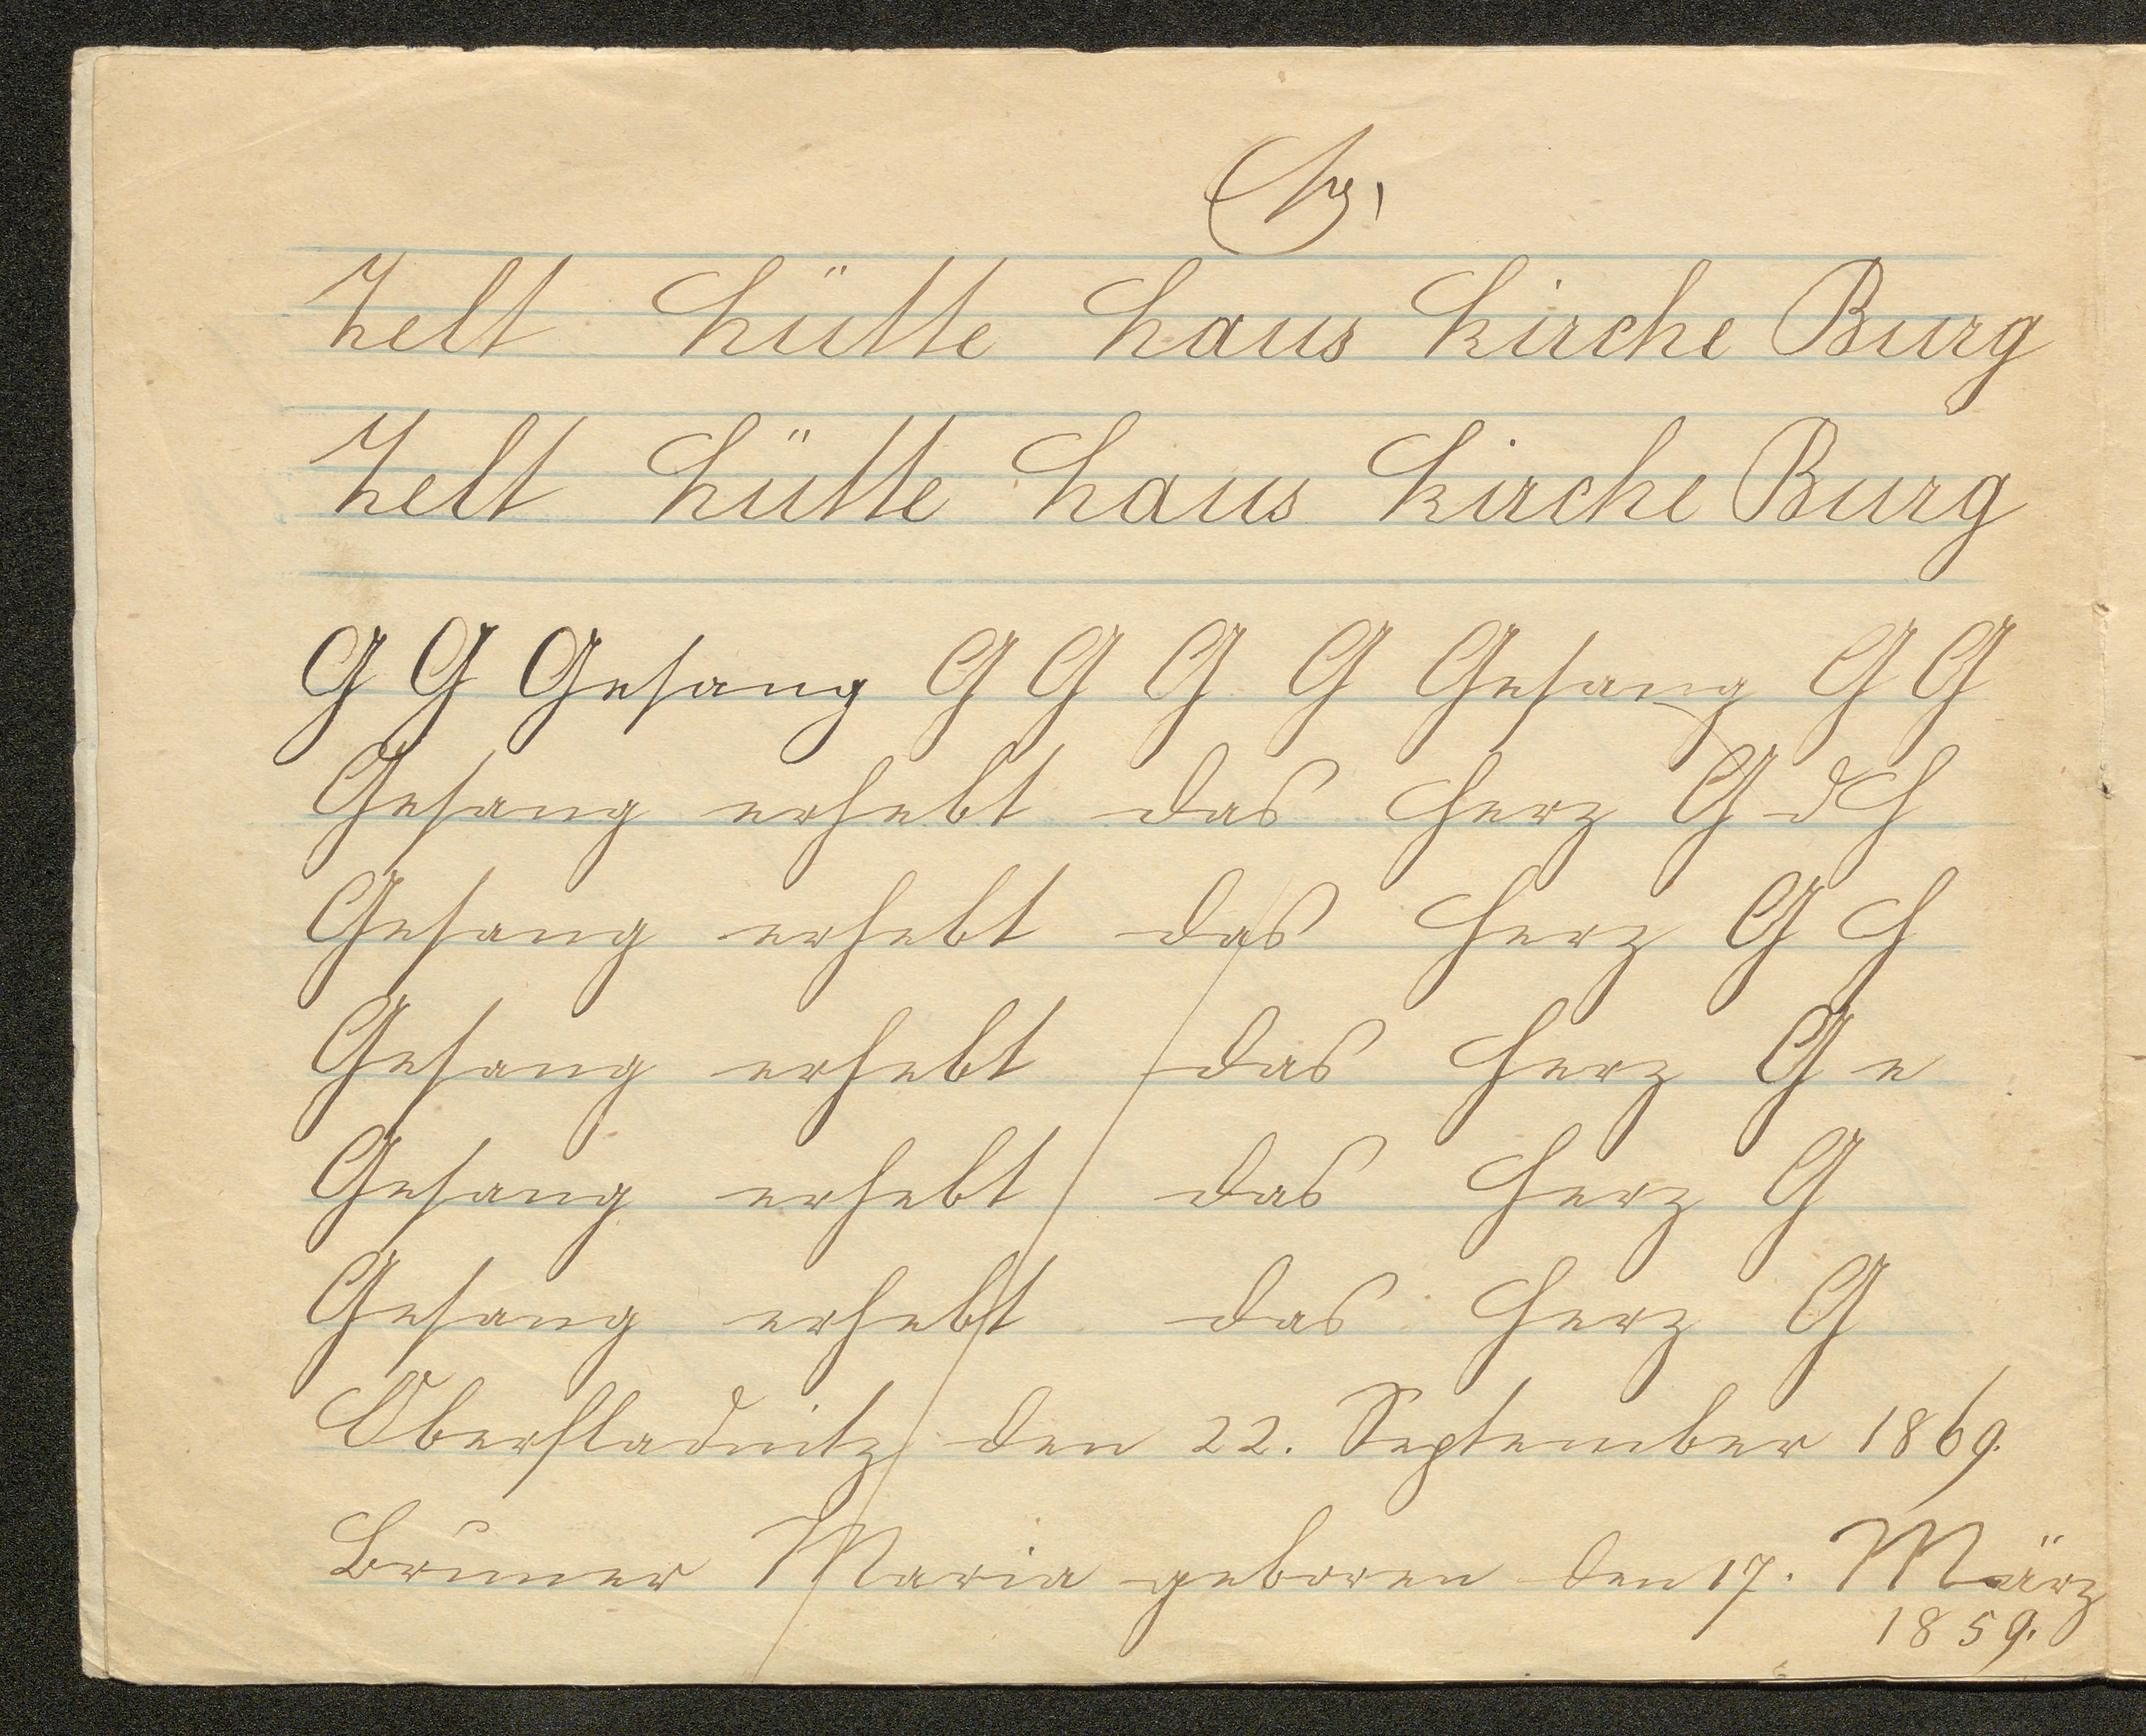 Zelt Hütte Haus Kirche Burg
Zelt Hütte Haus Kirche Burg
G G Gesang G G G G Gesang G G
Gesang erhebt das Herz G d H
Gesang erhebt das Herz G H
Gesang erhebt das Herz G e
Gesang erhebt das Herz G
Gesang erhebt das Herz G
Oberfladnitz den 22. September 1869.
Maria geboren den 17. März
1859.